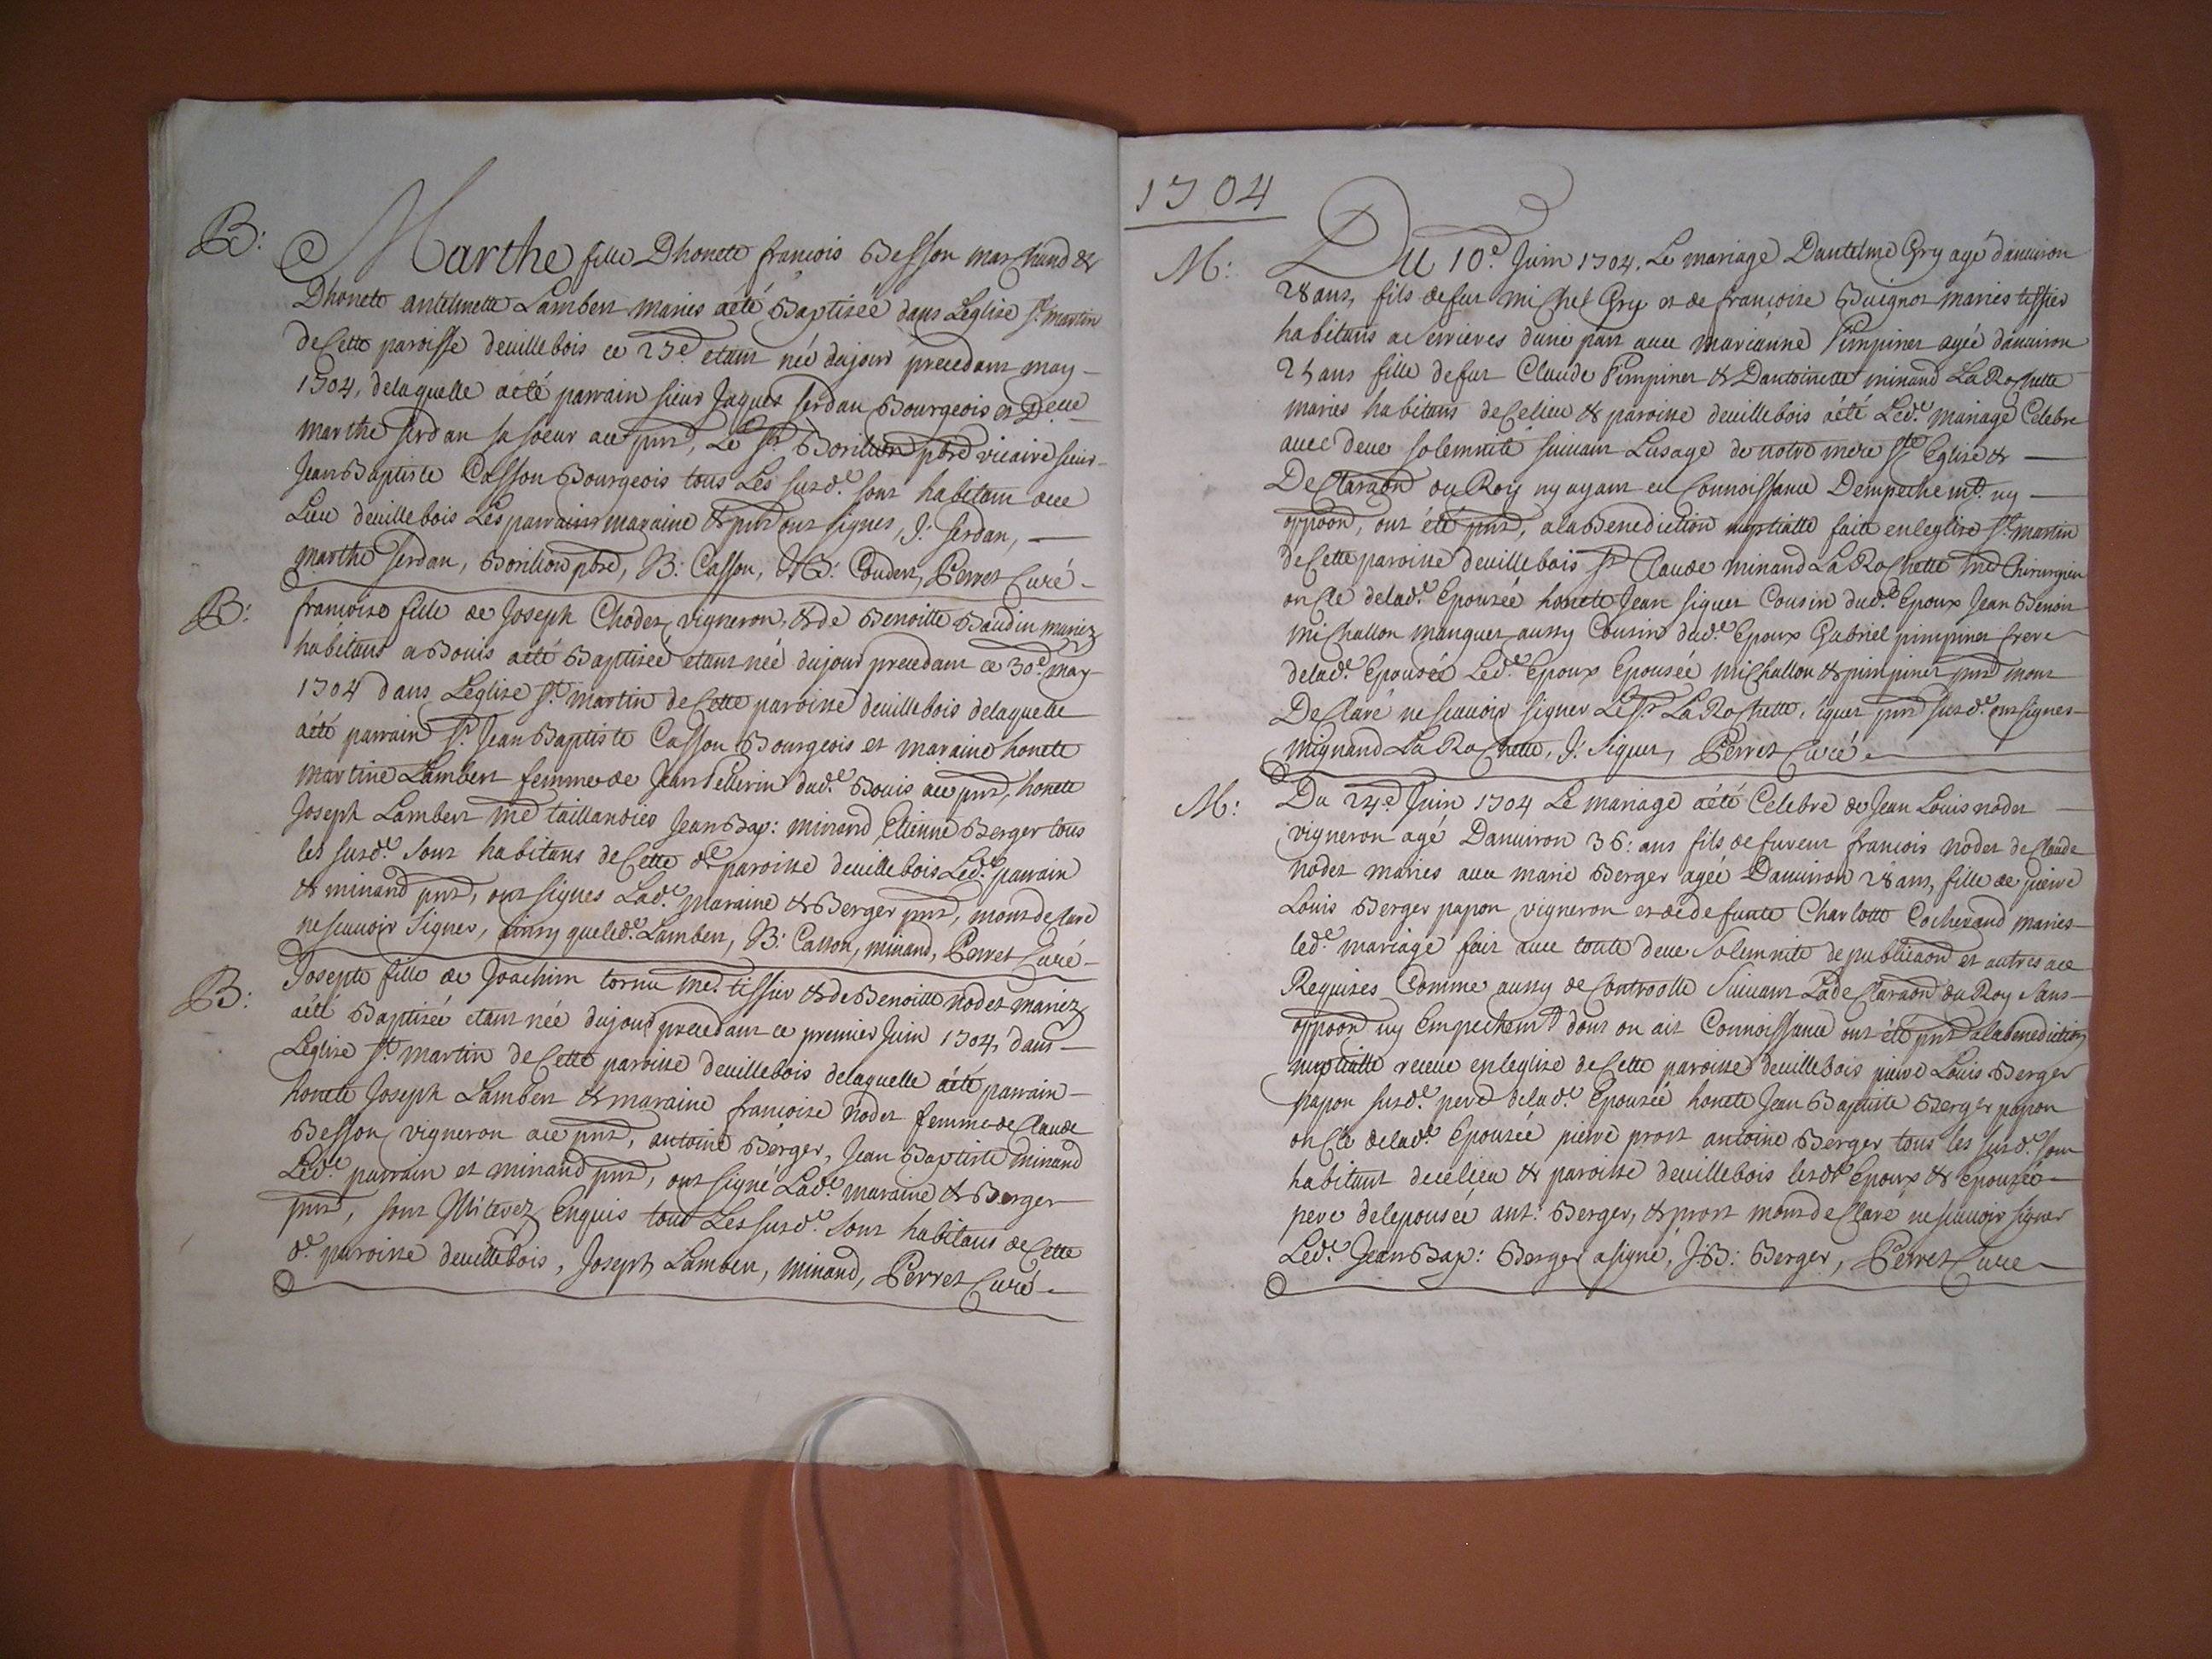 B:
Marthe fille Dhonete francois Besson marchand &
Dhonete antelmette Lambert maries aété Baptisée dans Leglise St. martin
deCette paroisse deuillebois ce 25e. etant née dujour precedant may
1704, delaquelle aété parrain sieur Jaques Serdan Bourgeois et Delle
marthe Serdan sa soeur ace pnts, Le Sr. Borillion pbre vicaire sieur
JeanBaptiste Casson Bourgeois tous Les susd.e sont habitans dece
Lieu deuillebois Les parrain maraine & pnts ont signes, J: Serdan,
marthe Serdan, Borillion pbre, B: Casson, Couders, Perret Curé
B:
francoise fille de Joseph Chodet, vigneron, & de Benoitte Baudin mariez
habitans a Bouis aété Baptisée etant née dujour precedant ce 30e. may
1704 dans Leglise St. martin deCette paroisse deuillebois delaquelle
aété parrain Sr. Jean Baptiste Casson Bourgeois et maraine honete
martine Lambert femme de Jean Pellerin dud.e Bouis ace pnts, honete
Joseph Lambert me taillandier JeanBap: minand, Etienne Berger tous
les susd.e sont habitans deCette d.e paroisse deuillebois Led.e parrain
& minand pnts, ont signes Lad.e maraine & Berger pnts, mont declaré
nesçauoir signer, ainsy queled.e Lambert, B: Casson, minand, Perret Curé
B:
Josepte fille de Joachim tornu me. tissier & deBenoitte nodet mariez
aété Baptisée etant née dujour precedant ce premier Juin 1704, dans
Leglise St. martin deCette paroisse deuillebois delaquelle aété parrain
honete Joseph Lambert & maraine francoise nodet femme de Claude
Besson, vigneron ace pnts, antoine Berger, Jean Baptiste minand
Led.e parrain et minand pnts, ont signé Lad.e maraine & Berger
pnts, sont Miterez Enquis tous Les susd.e sont habitans deCette
d.e paroisse deuillebois, Joseph Lambert, minand, Perret Curé
1704
M:
Du 10e. Juin 1704. Le mariage Dantelme Gry agé danuiron
28 ans, fils defut michel Gry et de francoise Buignot maries tissier
habitans a errieres dune part auec marianne Pimpinet agée danuiron
25 ans fille defut Claude Pimpinet & Dantoinette minand LaRochette
maries habitans deCelieu & paroisse deuillebois aété Led.e mariage Celebre
auec deue solemnité suiuant Lusage de notre mere Ste. Eglise &
Declaraon du Roy ny ayant eu Connoissance Dempechemt. ny
oppoon, ont été pnts, alaBenediction nuptialle faite enleglise St. martin
deCette paroisse deuillebois Sr Claude minand LaRochette me Chirurgien
oncle delad.e Epousée honete Jean siguet Cousin dud.e Epoux Jean Benoit
michallon manguet aussy Cousin dud.e Epoux Gabriel pimpinet frere
delad.e Epousée Led.e Epoux Epousée michallon & pimpinet pnts mont
Declaré nesçauoir signer LeSr. LaRochette, iguet pnts susd.e ont signes
mignand LaRochette, J: Siguet, Perret Curé
M:
Du 24e Juin 1704 Le mariage aété Celebre de Jean Louis nodet
vigneron agé Danuiron 36: ans fils defuveut francois nodet deClaude
nodet maries auec marie Berger agée Danuiron 28 ans, fille de pierre
Louis Berger papon vigneron et dedefunte Charlotte Cocherand maries
led.e mariage fait auec toute deue Solemnite depublicaon et autres ace
Requises Comme aussy de Controolle Suiuant LadeClaraon du Roy Sans
oppoon ny Empechemt dont on ait Connoissance ont été pnts alabenediction
nuptialle receue enleglise deCette paroisse deuillebois pierre Louis Berger
papon susd.e pere delad.e Epousée honete Jean Baptiste Berger papon
oncle delad.e Epousée pierre prost antoine Berger tous les susd.e sont
habitant decelieu & paroisse deuillebois lesd.e Epoux & Epousée
pere delepousée ant: Berger, & prost mont deClaré nesçauoir signer
Led.e JeanBap: Berger asigné, J:B: Berger, Perret Curé